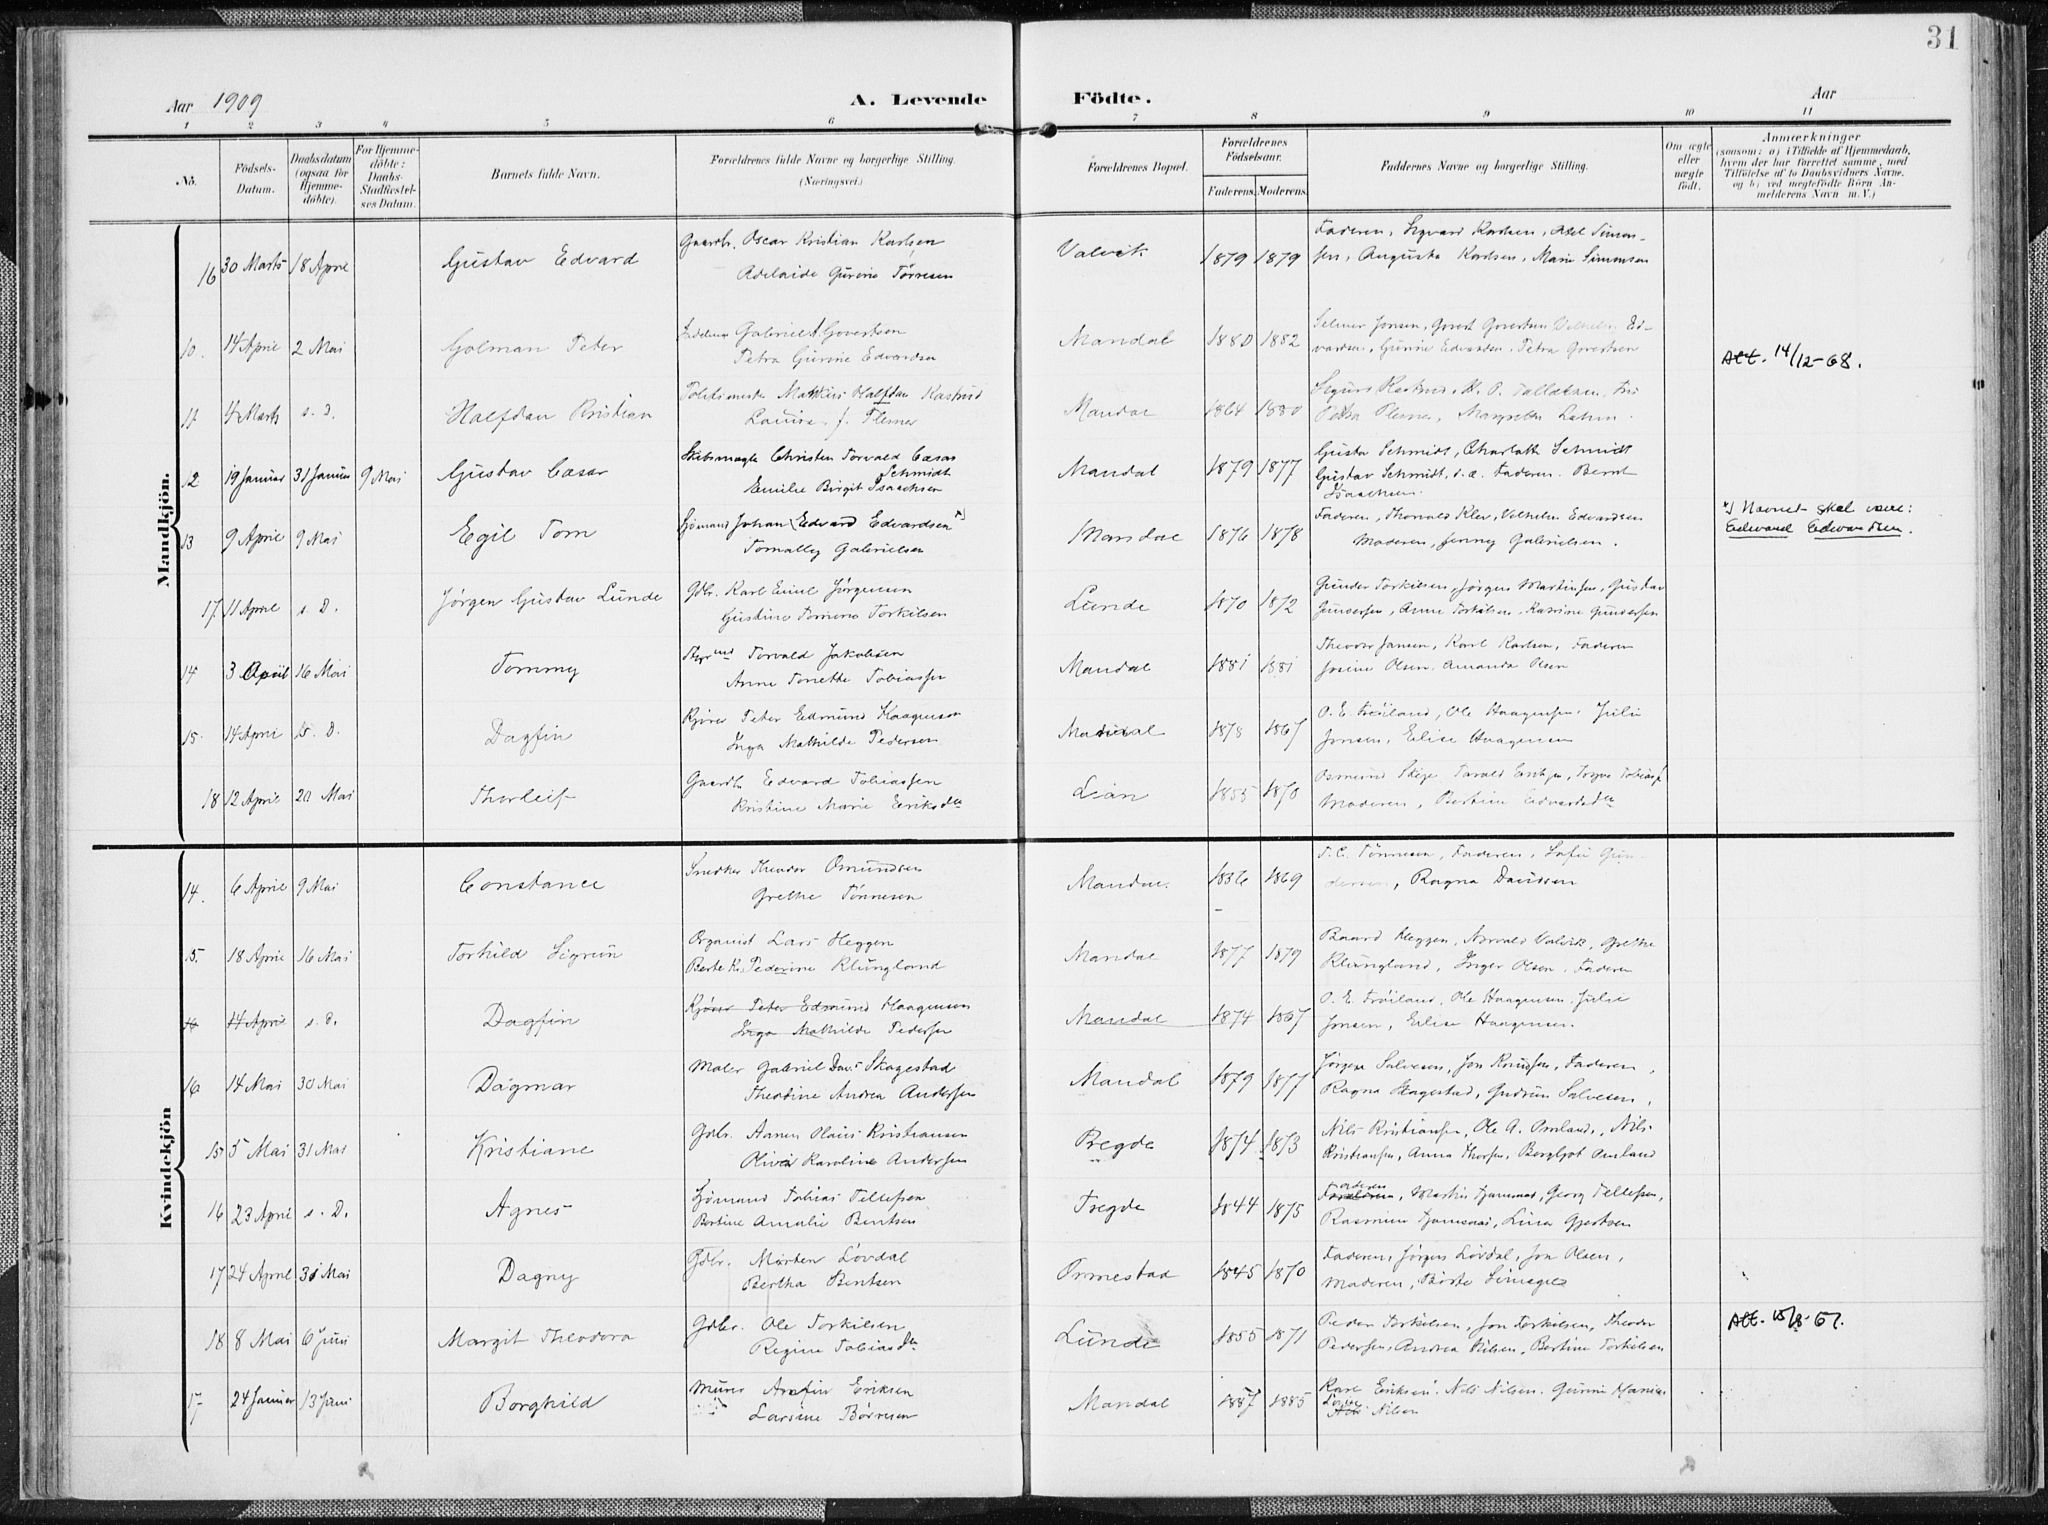 31
Aar 1909 A. Levende Födte. Aar
1 2 3 4 5 6 7 8 9 10 11
No. Födsels-Datum. Daabsdatum (ogsaa for Hjemme-döbte). For Hjemme-döbte: Daabs-Stadfæstel-ses Datum. Barnets fulde Navn. Forældrenes fulde Navne og borgerlige Stilling. (Næringsvei.) Forældrenes Bopæl. Forældrenes Födselsaar. Faderens. Moderens. Faddernes Navne og borgerlige Stilling. Om ægte eller uægte födt. Anmærkninger (saasom: a) i Tilfælde af Hjemmedaab, hvem der har forrettet samme, med Tilföielse af to Daabsvidners Navne, og b) ved uegtefödte Börn An-melderens Navn m. V.)
Mandkjön.
16 30 Marts 18 April Gustav Edvard Gaardbr. Oscar Kristian Karlsen Valvik 1879 1879 Faderen, Sigvard Karlsen, Axel Simon-
Adelaide Gurine Tørresen sen, Augusta Karlsen, Marie Simonsen
10. 14 April 2 Mai Golman Peter Gabriel Govertsen Mandal 1880 1882 Selmer Jonsen, Govert Govertsen, Vilhelm Ed-
Petra Gurine Edvardsen vardsen, Gurine Edvardsen, Petra Govertsen
Att. 14/12-68.
11 4 Marts s. D. Halfdan Kristian Halfdan Kastrud Mandal 1864 1880
Louise f. Flemer
12 19 Januar 31 Januar 9 Mai Gustav Cæsar Skibsmægler Christen Torvald Cæsar Schmidt Mandal 1879 1877 Gusta Schmidt, Charlotte Schmidt
Emilie Birgit Isaachsen Gustav Schmidt, Faderen. Bernt Isaachsen.
13 9 April 9 Mai Egil Tom Sømand Johan (Edvard Edvardsen *) Mandal 1876 1878 Faderen, Thorvald Klev, Vilhelm Edvardsen
Tomally Gabrielsen Moderen, Jenny Gabrielsen.
*) Navnet skal være: Edvard Edvardsen.
17. 11 April s. D. Jørgen Gustav Lunde Gdbr. Karl Emil Jørgensen Lunde 1870 1872 Gunder Torkilsen, Jørgen Martinsen, Gustav
Gustine Tomine Torkilsen Gundersen, Anne Torkilsen, Katrine Gundersen
14 3 April 16 Mai Tommy Torvald Jakobsen Mandal 1881 1881 Theodor Jansen, Karl Karlsen, Faderen
Anne Tonette Tobiassen Josine Olsen. Amanda Olsen
15. 14 April s. D. Dagfin Kjører Peter Edmund Haagensen Mandal 1878 1867 O. E. Frøiland, Ole Haagensen. Julie
Inga Mathilde Pedersen Jonsen, Elise Haagensen
18 12 April 20 Mai Thorleif Gaardb. Edvard Tobiassen Lian 1855 1870 Osmund Skeje
Kristine Marie Eriksdtr Moderen, Bertine Edvardsdtr
Kvindekjön
14. 6 April 9 Mai Constance Snedker Theodor Omundsen Mandal. 1836 1869 T. C. Tönnesen, Faderen, Sofie Gun-
Grethe Tönnesen dersen, Ragna Davidsen
15. 18 April 16 Mai Torhild Sigrun Organist Lars Heggen Mandal 1877 1879 Baard Heggen, Norvald Valvik, Grethe
Berte K. Pederine Klungland Klungland, Inger Olsen. Faderen
16 14 April s. D. Dagfin Kjører Peter Edmund Haagensen Mandal 1874 1867 O. E. Frøiland, Ole Haagensen. Julie
Inga Mathilde Pedersen Jonsen, Elise Haagensen.
16 14 Mai 30 Mai Dagmar Maler Gabriel Dav. Skagestad Mandal 1879 1877 Jørgen Salvesen, Jon Knudsen, Faderen,
Theodine Andrea Andersen Ragna Skagestad, Gudrun Salvesen,
15 5 Mai 31 Mai Kristiane Gdbr. Aanen Olaus Kristiansen Tregde 1874 1873 Nils Kristiansen, Ole A. Omland, Nils
Olivia Karoline Andersen Kristiansen, Anna Thorsen, Bergljot Omland
16 23 April s. D. Agnes Sømand Tobias Tellefsen Tregde 1844 1875 Faderen, Georg Tellefsen,
Bertine Amalie Bentsen Lina Gjertsen
17 24 April 31 Mai Dagny Gdbr. Morten Løvdal Ormestad 1845 1870 Faderen, Jørgen Løvdal, Jon Olsen,
Bertha Bentsen Moderen,
18 8 Mai 6 Juni Margit Theodora Gdbr. Ole Torkilsen Lunde 1855 1871 Peder Torkilsen, Jon Torkilsen, Theodor
Regine Tobiasdtr Pedersen, Andrea Nilsen, Bertine Torkilsen
17 24 Januar 13 Juni Borghild Murer Arnfin Eriksen Mandal 1887 1885 Karl Eriksen. Nils Nilsen.
Larsine Børresen Nilsen